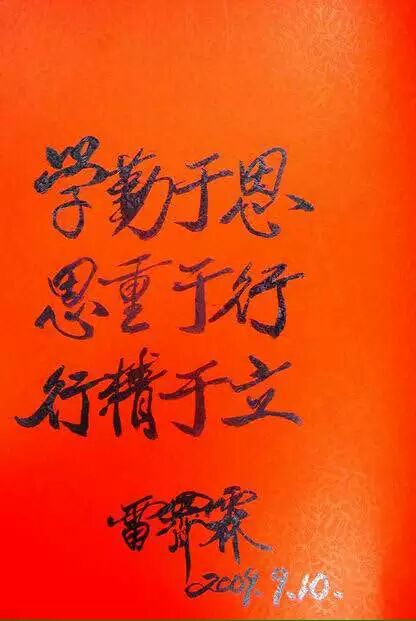 学勤于思
思重于行
行精于立
雷霁霖
2009.9.10.